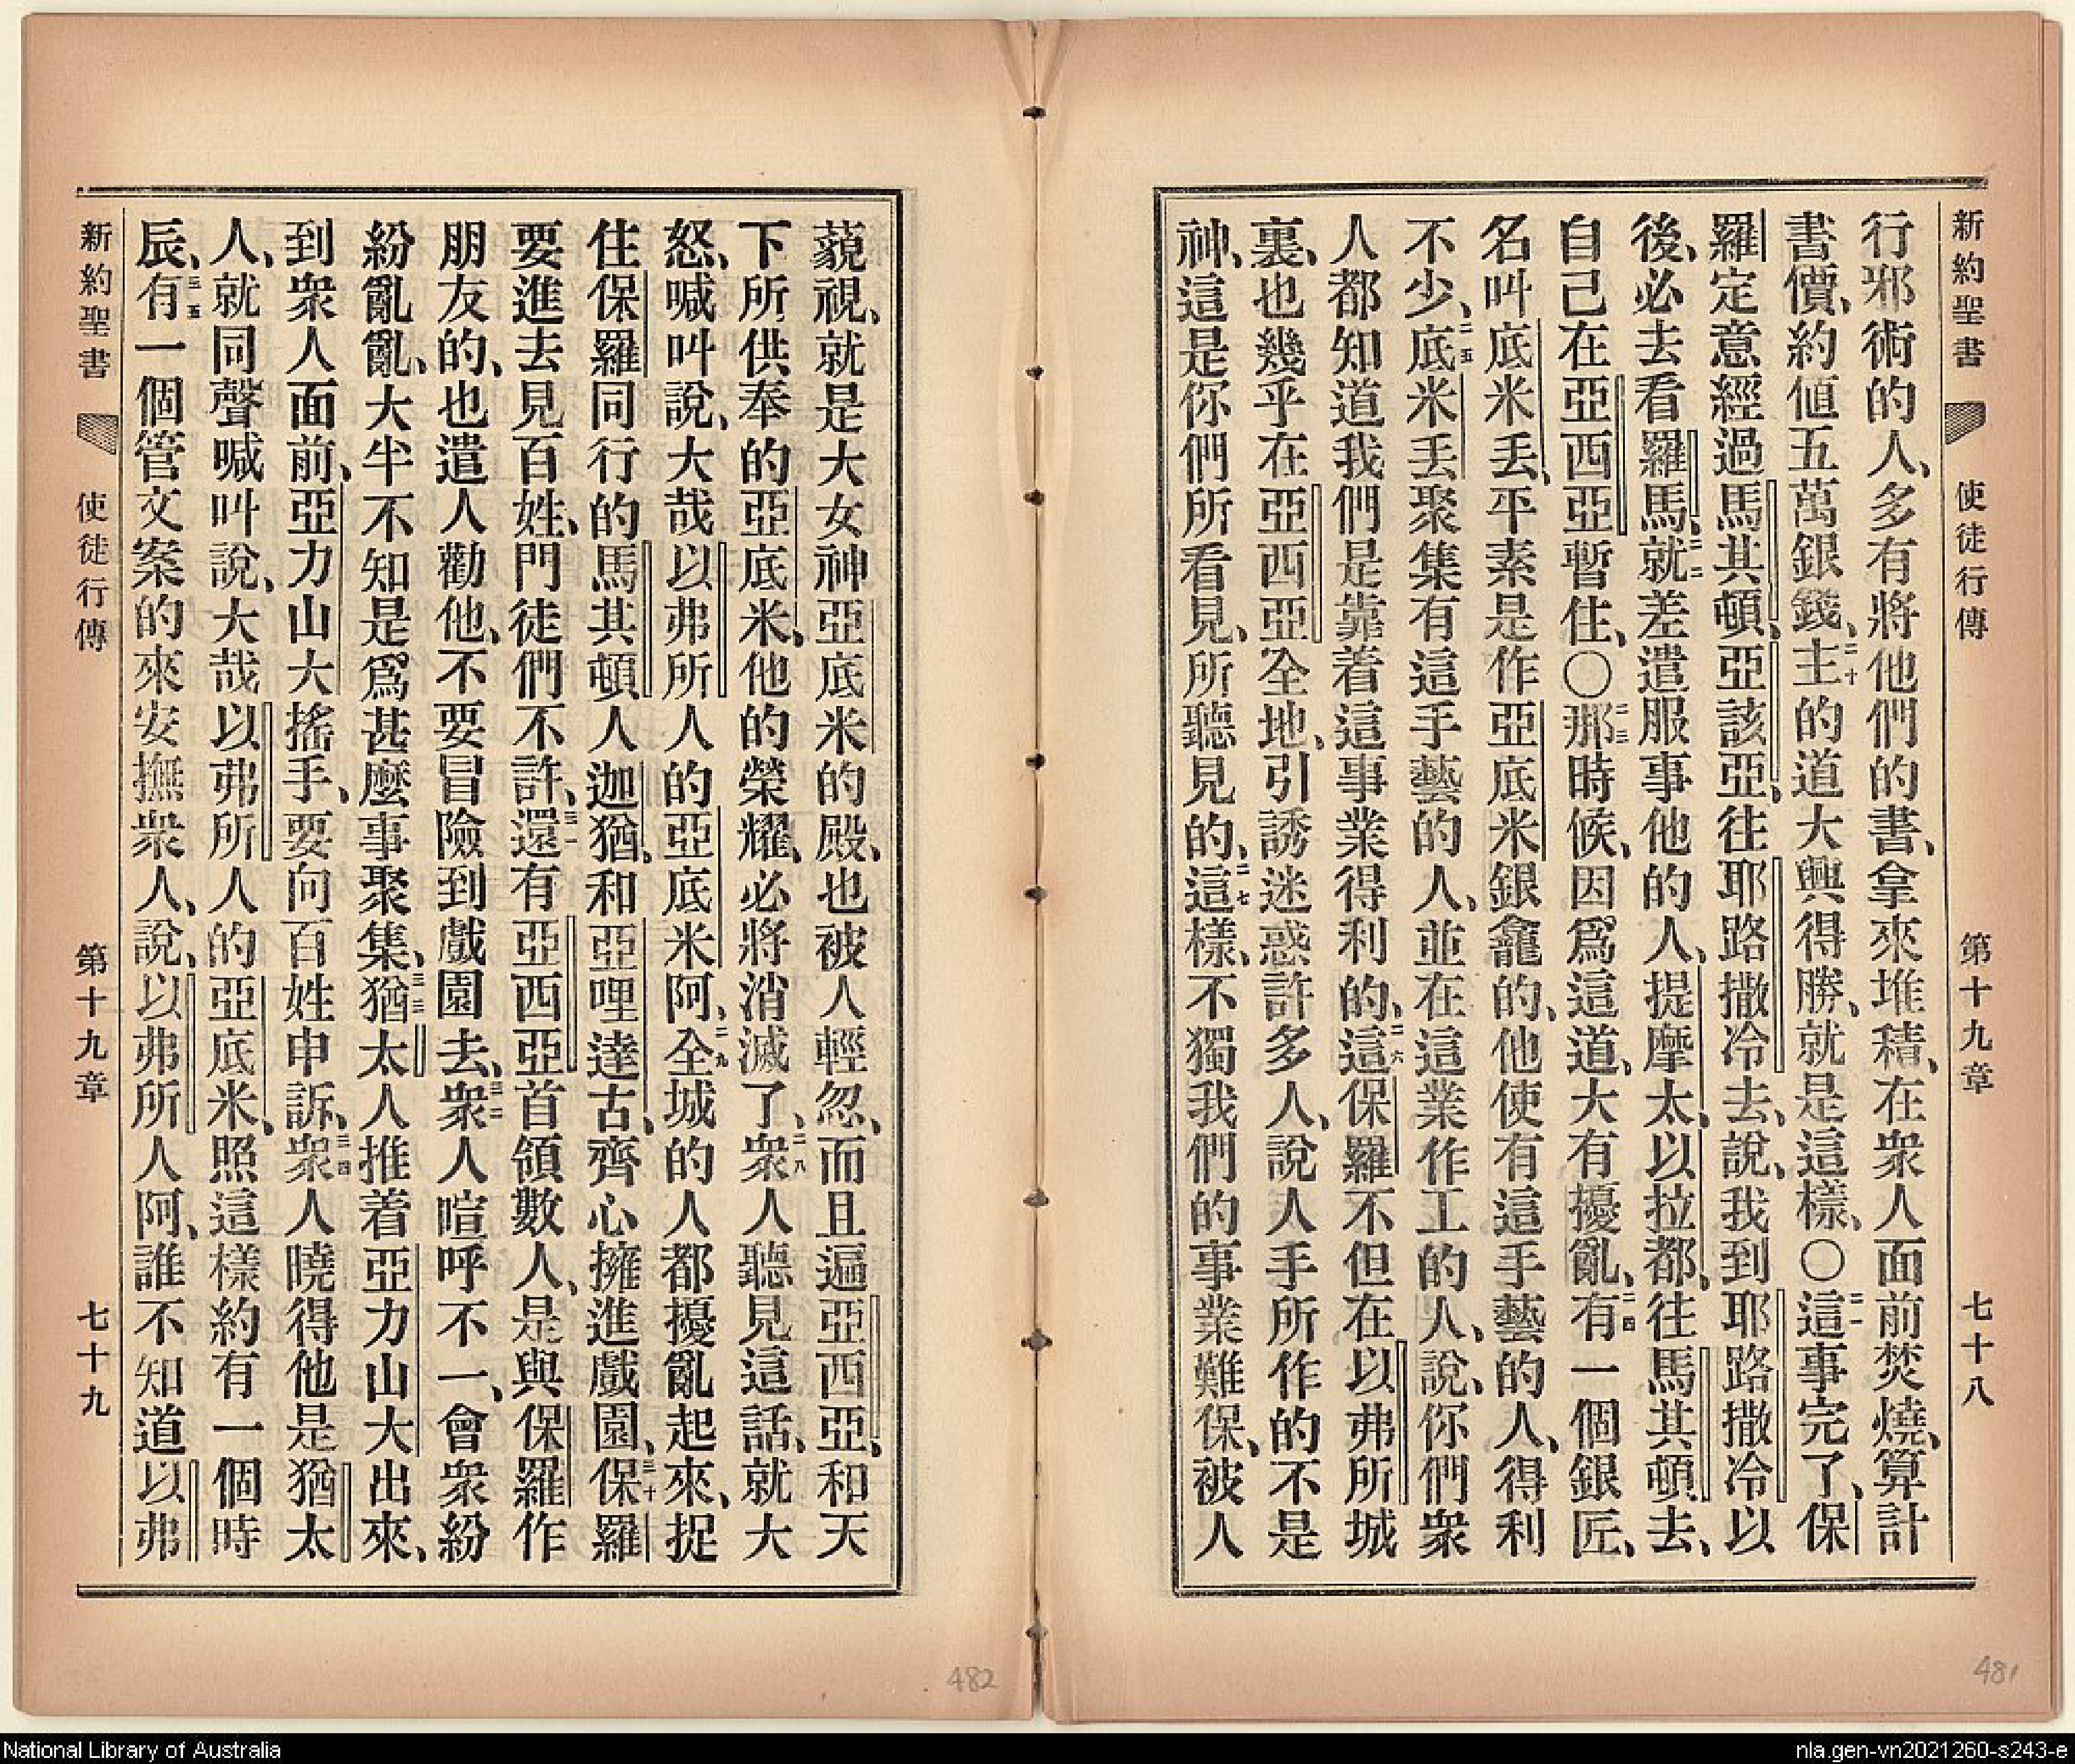 新約聖書 使徒行傳 第十九章 七十八
行邪術的人、多有將他們的書、拿來堆積、在衆人面前焚燒、算計
書價、約値五萬銀錢、二十主的道大興得勝、就是這樣、〇二一這事完了、保
羅定意經過馬其頓、亞該亞、往耶路撒冷去、說、我到耶路撒冷以
後、必去看羅馬、二二就差遣服事他的人、提摩太、以拉都、往馬其頓去、
自己在亞西亞暫住、〇二三那時候、因爲這道、大有擾亂、二四有一個銀匠、
名叫底米丟、平素是作亞底米銀龕的、他使有這手藝的人、得利
不少、二五底米丟聚集有這手藝的人、並在這業作工的人、說、你們衆
人都知道我們是靠着這事業得利的、二六這保羅不但在以弗所城
裏、也幾乎在亞西亞全地、引誘迷惑許多人、說人手所作的不是
神、這是你們所看見、所聽見的、二七這樣、不獨我們的事業難保、被人
藐視、就是大女神亞底米的殿、也被人輕忽、而且遍亞西亞、和天
下所供奉的亞底米、他的榮耀、必將消滅了、二八衆人聽見這話、就大
怒、喊叫說、大哉以弗所人的亞底米阿、二九全城的人都擾亂起來、捉
住保羅同行的馬其頓人迦猶、和亞哩達古、齊心擁進戲園、三十保羅
要進去見百姓、門徒們不許、三一還有亞西亞首領數人、是與保羅作
朋友的、也遣人勸他、不要冒險到戲園去、三二衆人喧呼不一、會衆紛
紛亂亂、大半不知是爲甚麼事聚集、三三猶太人推着亞力山大出來、
到衆人面前、亞力山大搖手、要向百姓申訴、三四衆人曉得他是猶太
人、就同聲喊叫說、大哉以弗所人的亞底米、照這樣約有一個時
辰、三五有一個管文案的來安撫衆人、說、以弗所人阿、誰不知道以弗
新約聖書 使徒行傳 第十九章 七十九
482
481
National Library of Australia
nla.gen-vn2021260-s243-e